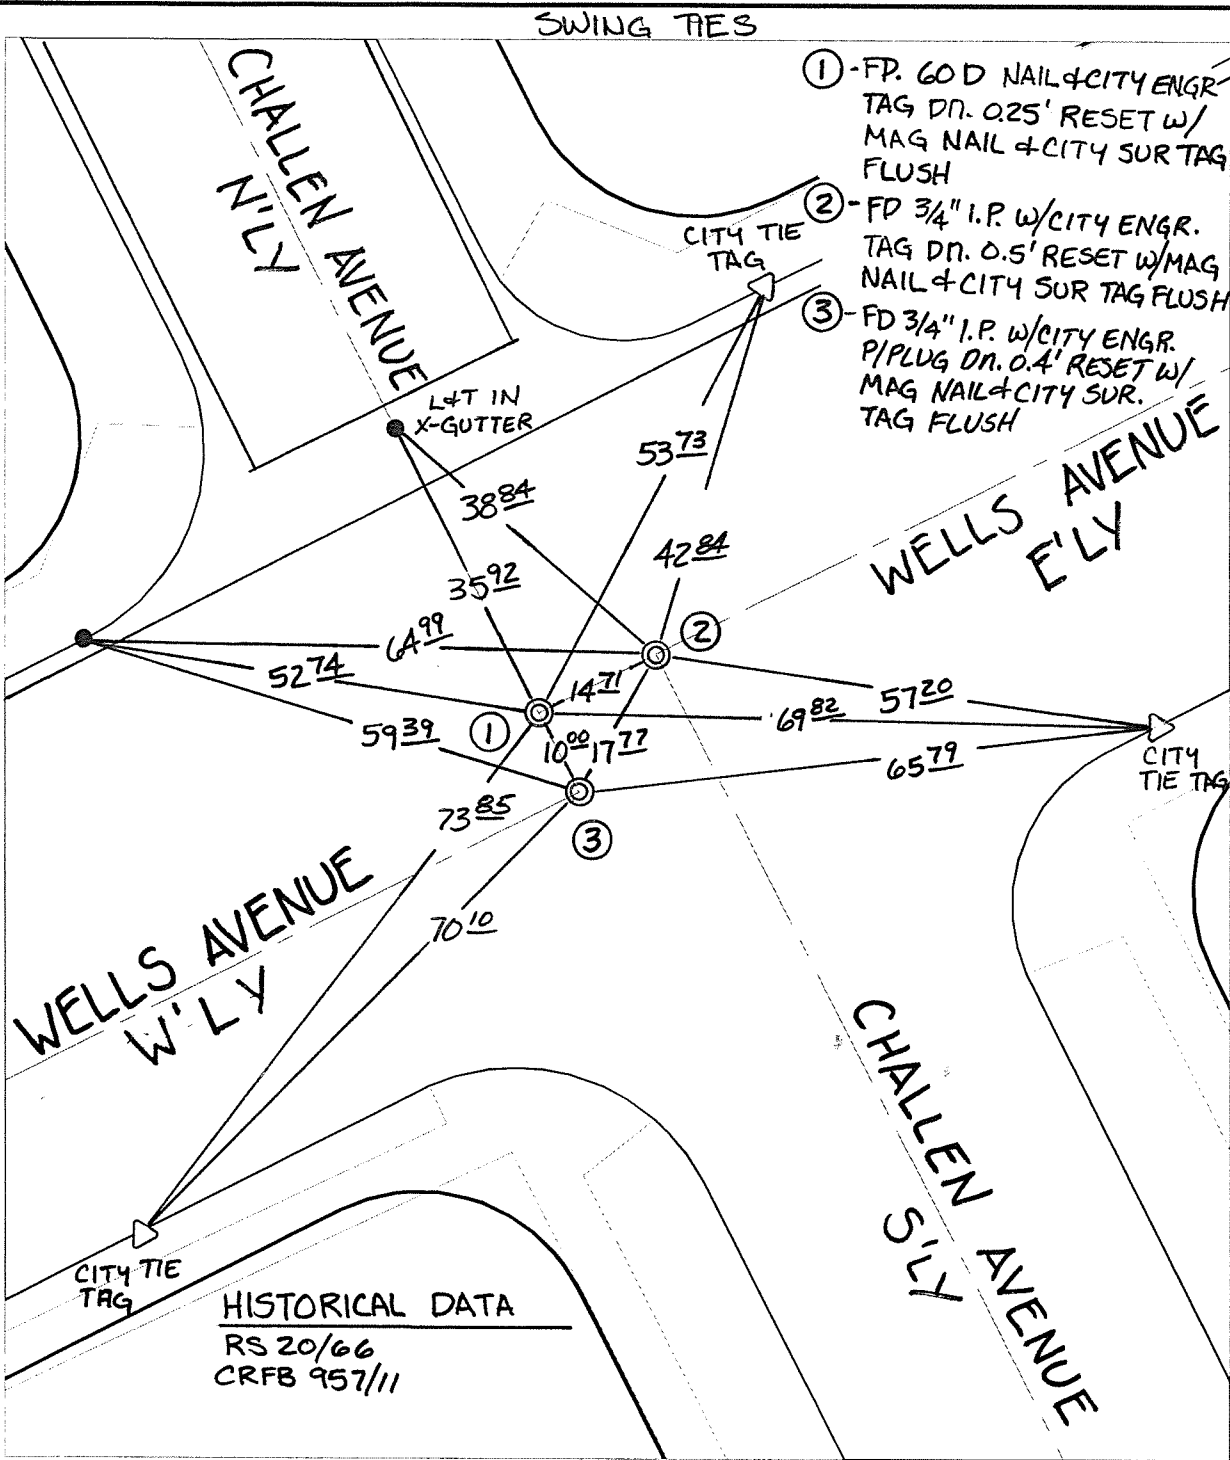 SWING TIES
① - FD. 60 D NAIL & CITY ENGR
TAG DN. 0.25' RESET W/
MAG NAIL & CITY SUR TAG
FLUSH
② - FD 3/4" I.P. W/CITY ENGR.
TAG DN. 0.5' RESET W/MAG
NAIL & CITY SUR TAG FLUSH
③ - FD 3/4" I.P. W/CITY ENGR.
P/PLUG DN. 0.4' RESET W/
MAG NAIL & CITY SUR.
TAG FLUSH
CHALLEN AVENUE
N'LY
CITY TIE
TAG
L&T IN
X-GUTTER
53 73
38 84
42 84
35 92
WELLS AVENUE
E'LY
64 99
②
52 74
14 71
57 20
69 82
①
59 39
10 00
17 77
65 79
CITY
TIE TAG
73 85
③
70 10
WELLS AVENUE
W'LY
CHALLEN AVENUE
S'LY
CITY TIE
TAG
HISTORICAL DATA
RS 20/66
CRFB 957/11